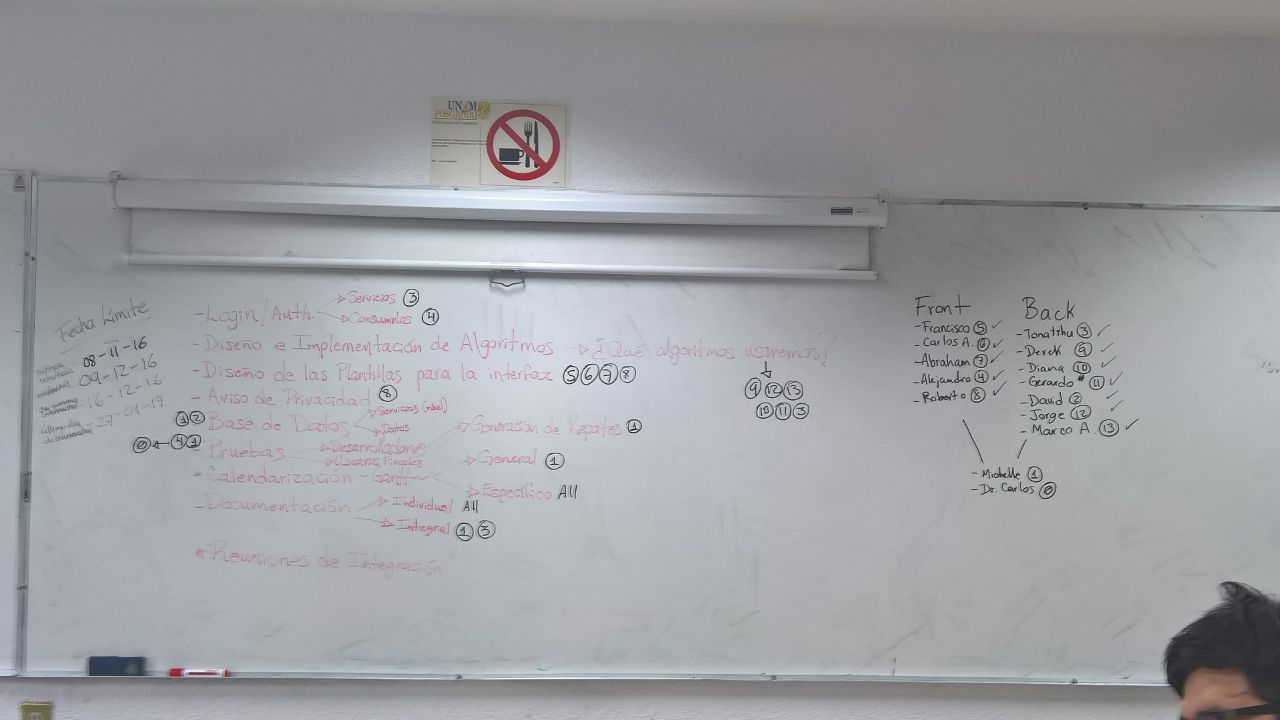 UNAM
POSGRADO
Fecha Límite
08-11-16
09-12-16
16-12-16
27-01-17
-Login/Auth. → Servicios ③
→ Consumirlos ④
-Diseño e Implementación de Algoritmos → ¿Qué algoritmos usaremos?
⑨ ⑫ ⑬
⑩ ⑪ ③
-Diseño de las Plantillas para la interfaz ⑤ ⑥ ⑦ ⑧
-Aviso de Privacidad ⑧
① ② Base de Datos → Servicios (móvil)
→ Datos
→ Generación de Reportes ①
⓪ ← ④ ① -Pruebas → Desarrolladores
→ Usuarios Finales
-Calendarización - gantt → General ①
→ Específico All
-Documentación → Individual All
→ Integral ① ③
*Reuniones de Integración
Front
-Francisco ⑤ ✓
-Carlos A. ⑥ ✓
-Abraham ⑦ ✓
-Alejandro ④ ✓
-Roberto ⑧ ✓
Back
-Tonatihu ③ ✓
-Derek ⑨ ✓
-Diana ⑩ ✓
-Gerardo ⑪ ✓
-David ② ✓
-Jorge ⑫ ✓
-Marco A. ⑬ ✓
-Michelle ①
-Dr. Carlos ⓪